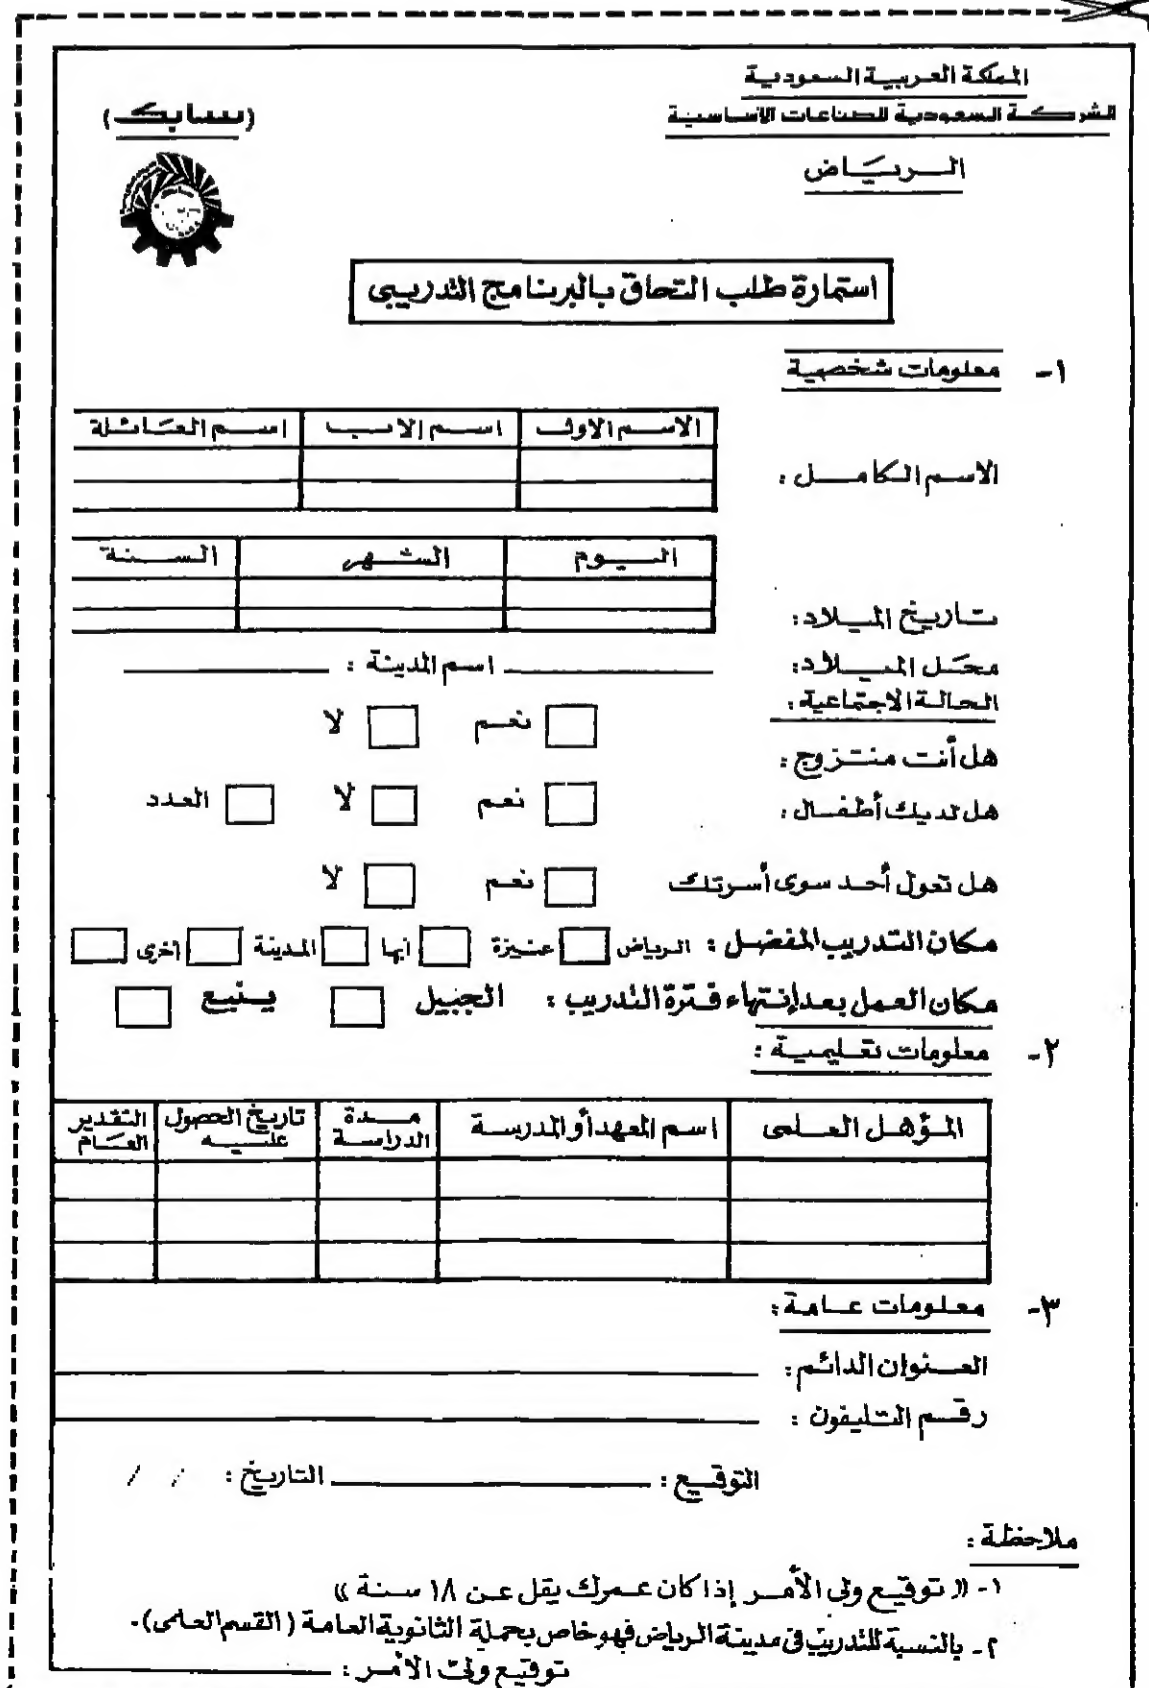 المملكة العربية السعودية
الشركة السعودية للصناعات الاساسية
(سابك)
الرياض
استمارة طلب التحاق بالبرنامج التدريبى
١- معلومات شخصية
الاسم الاول اسم الاب اسم العائلة
الاسم الكامل :
اليوم الشهر السنة
تاريخ الميلاد :
محل الميلاد : اسم المدينة :
الحالة الاجتماعية :
نعم لا
هل أنت متزوج :
هل لديك أطفال : نعم لا العدد
هل تعول أحد سوى أسرتك نعم لا
مكان التدريب المفضل : الرياض عنيزة ابها المدينة اخرى
مكان العمل بعد إنتهاء فترة التدريب : الجبيل ينبع
٢- معلومات تعليمية :
المؤهل العلمى اسم المعهد أو المدرسة مدة الدراسة تاريخ الحصول عليه التقدير العام
٣- معلومات عامة :
العنوان الدائم :
رقم التليفون :
التوقيع : التاريخ : / /
ملاحظة :
١- « توقيع ولى الأمر إذا كان عمرك يقل عن ١٨ سنة »
٢- بالنسبة للتدريب فى مدينة الرياض فهو خاص بحملة الثانوية العامة ( القسم العلمى ) .
توقيع ولى الأمر :